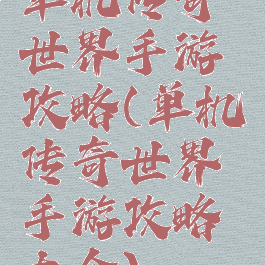 单机传奇
世界手游
攻略(单机
传奇世界
手游攻略
大全)